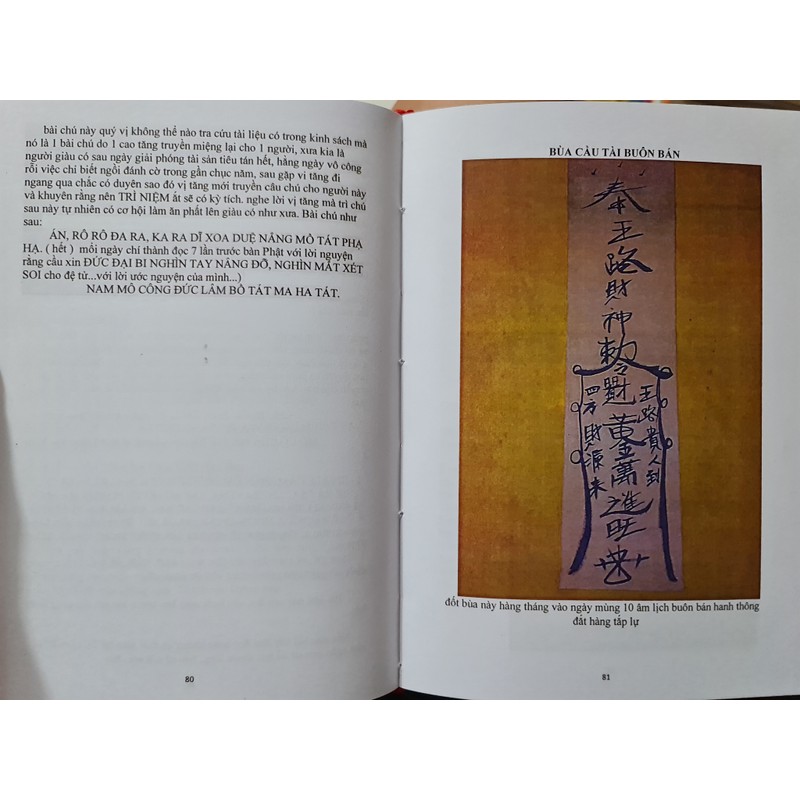 bài chú này quý vị không thể nào tra cứu tài liệu có trong kinh sách mà
nó là 1 bài chú do 1 cao tăng truyền miệng lại cho 1 người, xưa kia là
người giàu có sau ngày giải phóng tài sản tiêu tán hết, hằng ngày vô công
rỗi việc chỉ biết ngồi đánh cờ trong gần chục năm, sau gặp vi tăng đi
ngang qua chắc có duyên sao đó vị tăng mới truyền câu chú cho người này
và khuyên rằng nên TRÌ NIỆM ắt sẽ có kỳ tích. nghe lời vị tăng mà trì chú
sau này tự nhiên có cơ hội làm ăn phất lên giàu có như xưa. Bài chú như
sau:
ÁN, RÔ RÔ ĐA RA, KA RA DĨ XOA DUỆ NẴNG MÔ TÁT PHẠ
HẠ. ( hết ) mỗi ngày chí thành đọc 7 lần trước bàn Phật với lời nguyện
rằng cầu xin ĐỨC ĐẠI BI NGHÌN TAY NÂNG ĐỠ, NGHÌN MẮT XÉT
SOI cho đệ tử...với lời ước nguyện của mình...)
NAM MÔ CÔNG ĐỨC LÂM BỒ TÁT MA HA TÁT.
80
BÙA CẦU TÀI BUÔN BÁN
奉王路財神勅令
王路貴人到
黃金萬
進旺
四方財源来
đốt bùa này hàng tháng vào ngày mùng 10 âm lịch buôn bán hanh thông
đắt hàng tấp lự
81